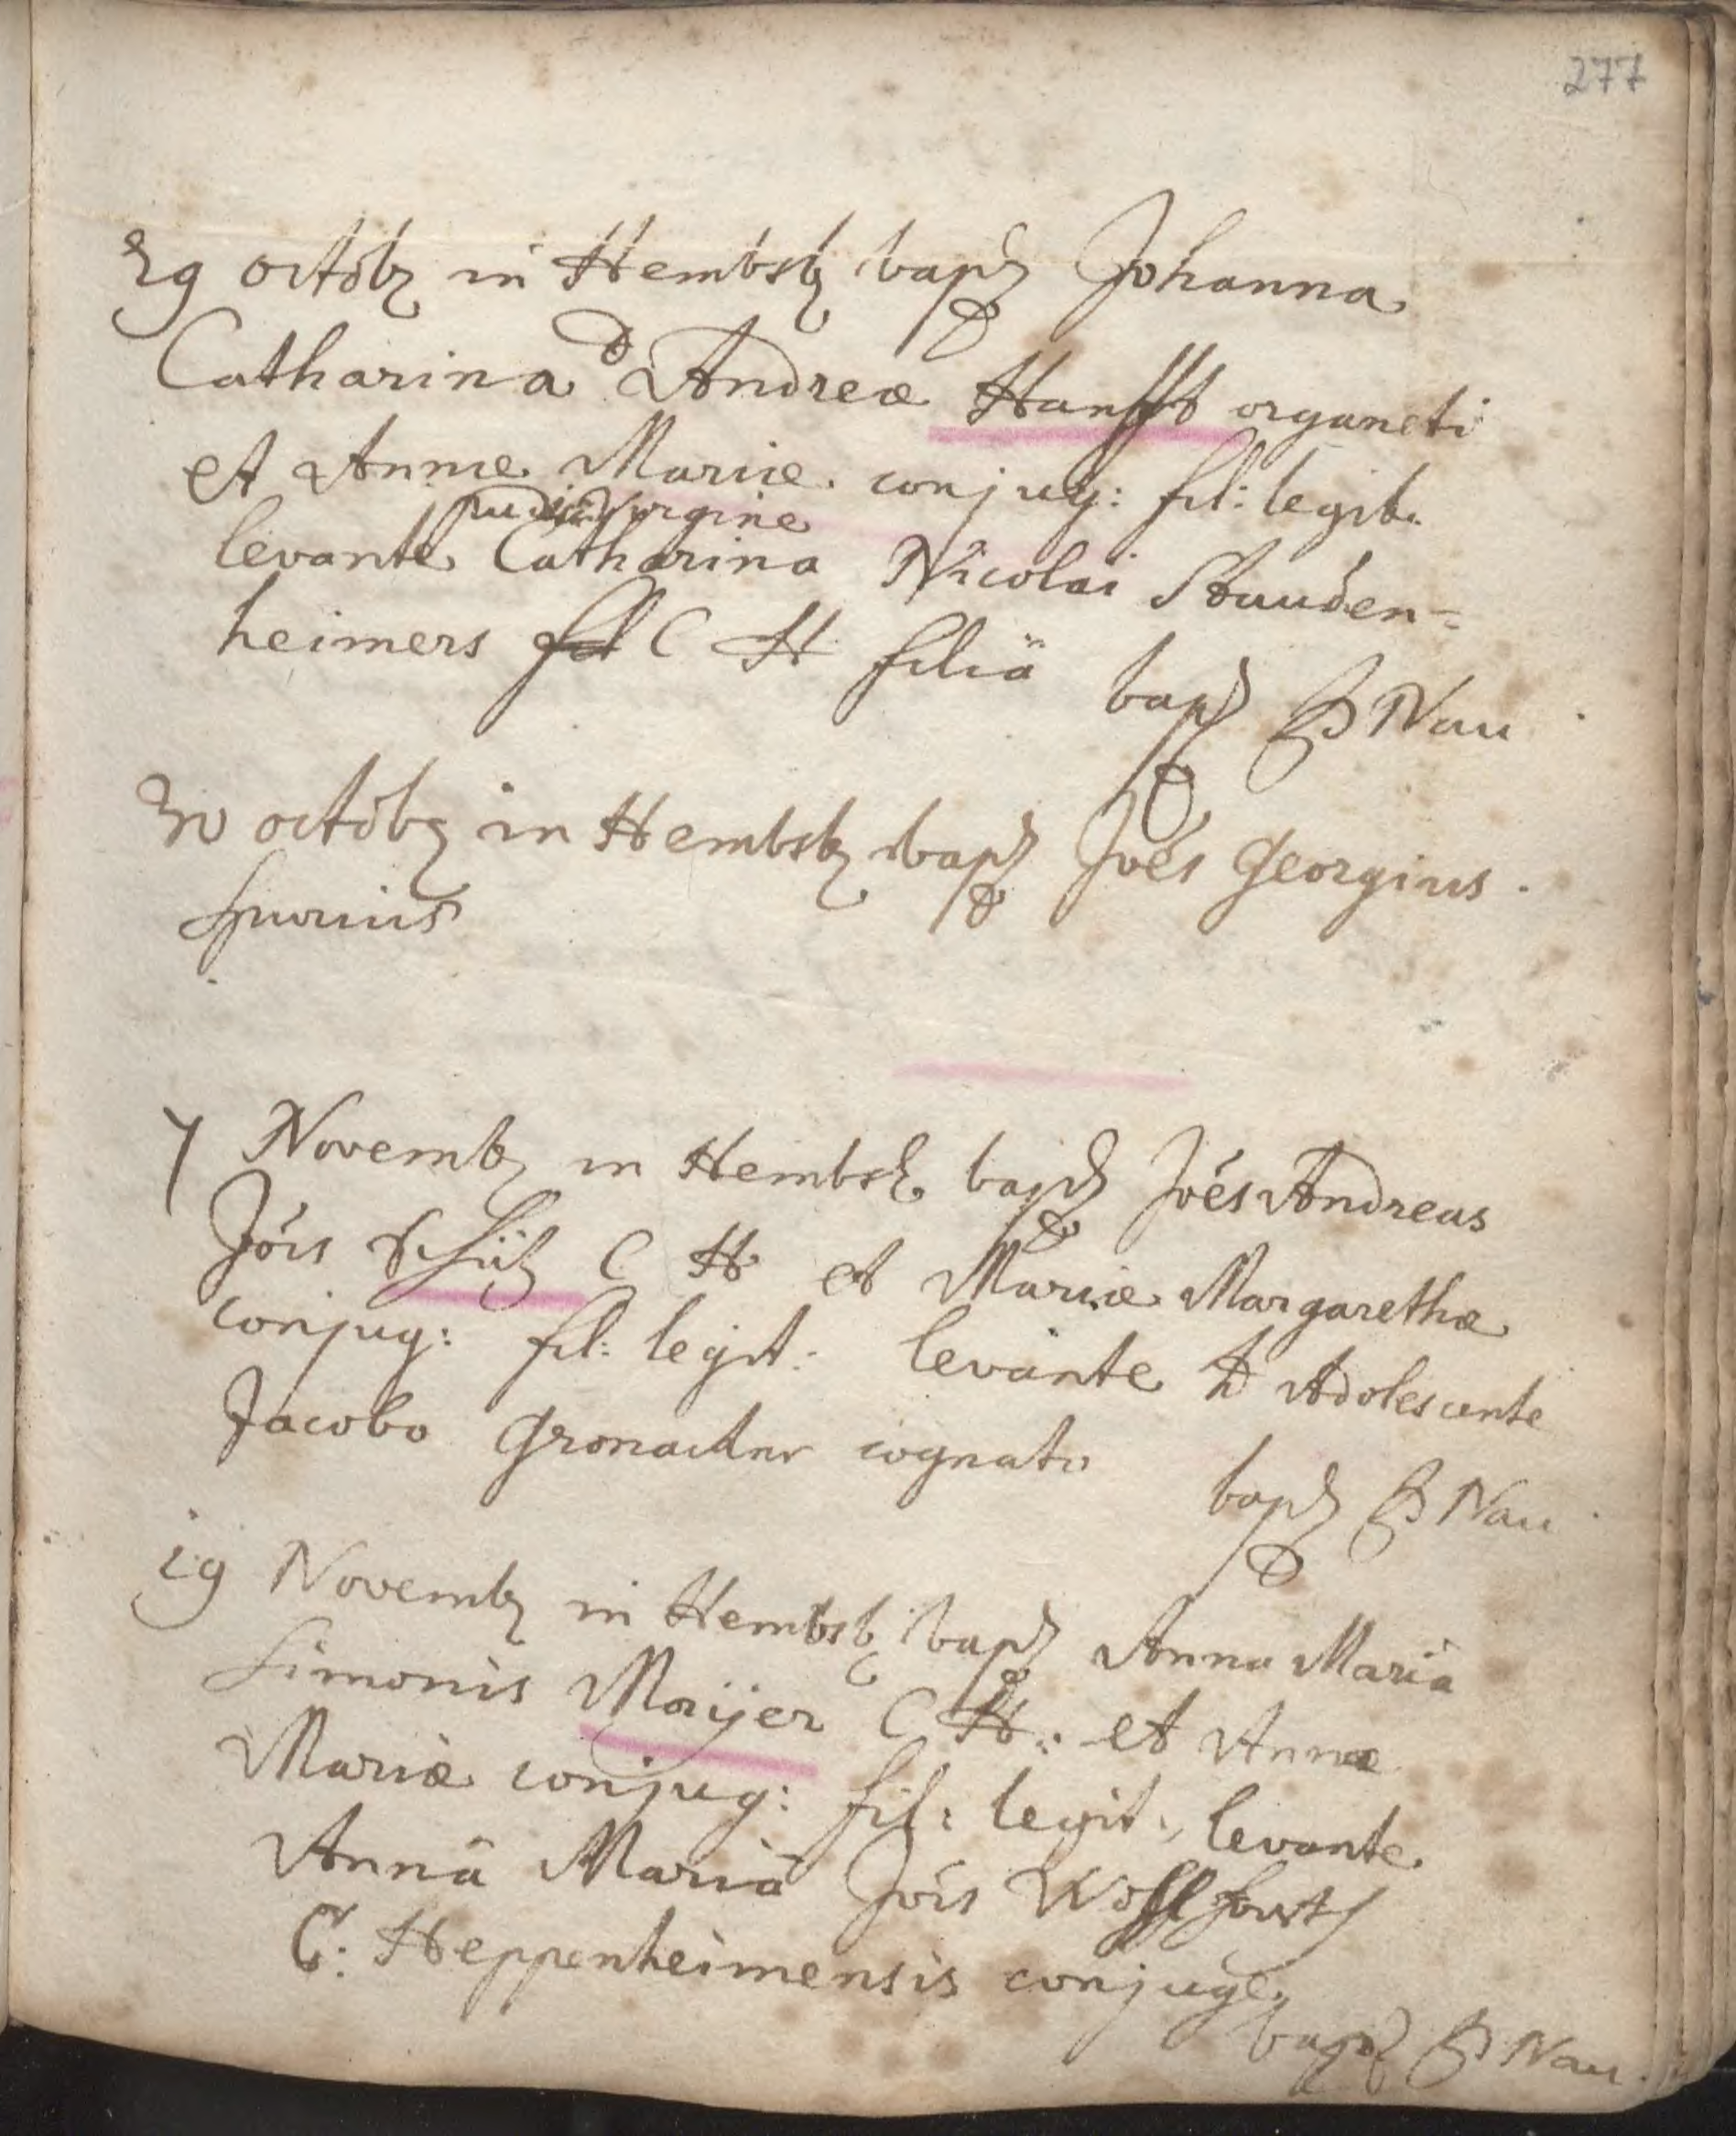 277
29 octobr in Hembsb bapt Johanna
Catharina D Andreæ Hanfft organeti
et Annæ Mariæ conjug: fil: legit:
pudica virgine
levante Catharina Nicolai Stauden=
heimers fil C H filiä
bapt P Nau
30 octobr in Hembsb bapt Joés Georgius
spurius
7 Novemb in Hembsb bapt Joés Andreas
Jois Schüz C H et Mariæ Margarethæ
conjug: fil: legit: levante D Adolescente
Jacobo Gronacker cognato
bapt P Nau
19 Novemb in Hembsb bapt Anna Maria
Simonis Maÿer C H: et Annæ
Mariæ conjug: fil: legit: levante
Annä Mariä Jois Wollfarth
C: Heppenheimensis conjuge
bapt P Nau